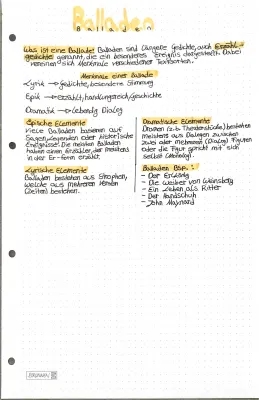 Balladen
Balladen
Was ist eine Ballade? Balladen sind längere Gedichte, auch Erzähl-
gedichte genannt, die ein besonderes Ereignis dargestellt. Dabei
vereinen sich Merkmale verschiedener Textsorten.
Merkmale einer Ballade
Lyrik → Gedichte, besondere Stimmung
Epik → Erzählt, handlungsreich, Geschichte
Dramatik → Lebendig, Dialog
Epische Elemente
Viele Balladen basieren auf
Sagen, Legenden oder historische
Ereignisse. Die meisten Balladen
haben einen Erzähler, der meistens
in der Er-form erzählt.
Lyrische Elemente
Balladen bestehen aus Strophen,
welche aus mehreren Versen
(Zeilen) bestehen.
Dramatische Elemente
Dramen (z.b. Theaterstücke) bestehen
meistens aus Dialogen zwischen
zwei oder mehreren (Dialog) Figuren
oder die Figur spricht mit sich
selbst (Monolog).
Balladen Bsp.:
- Der Erlkönig
- Die Weiber von Winsberg
- Ein Leben als Ritter
- Der Handschuh
- John Maynard
BRUNNEN